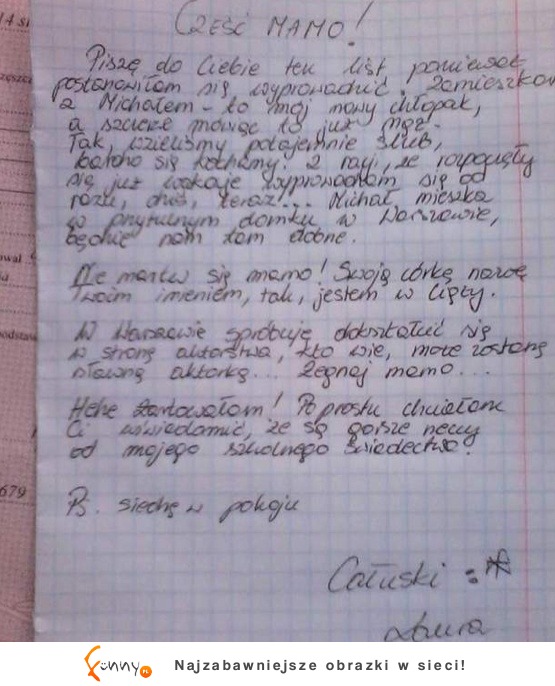 CZEŚĆ MAMO!
Piszę do Ciebie ten list ponieważ
postanowiłam się wyprowadzić. Zamieszkam
z Michałem - to mój nowy chłopak,
a szczerze mówiąc to już mąż.
Tak, wzięliśmy potajemnie ślub,
bardzo się kochamy. Z racji, że rozpoczęły
się już wakacje wyprowadzam się od
razu, dziś, teraz!... Michał mieszka
w przytulnym domku w Warszawie,
będzie nam tam dobrze.
Nie martw się mamo! Swoją córkę nazwę
Twoim imieniem, tak, jestem w ciąży.
W Warszawie spróbuję dokształcić się
w stronę aktorstwa, kto wie, może zostanę
sławną aktorką... Żegnaj mamo...
Hehe żartowałam! Po prostu chciałam
Ci uświadomić, że są gorsze rzeczy
od mojego szkolnego świadectwa!
Ps. siedzę w pokoju
Całuski :*
Laura
679
funny.pl
Najzabawniejsze obrazki w sieci!